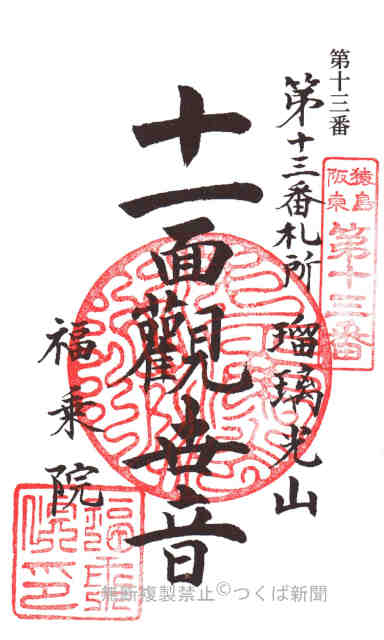 第十三番
猿島
阪東
第十三番
第十三番札所 瑠璃光山
十一面觀世音
福乗院
無断複製禁止©つくば新聞